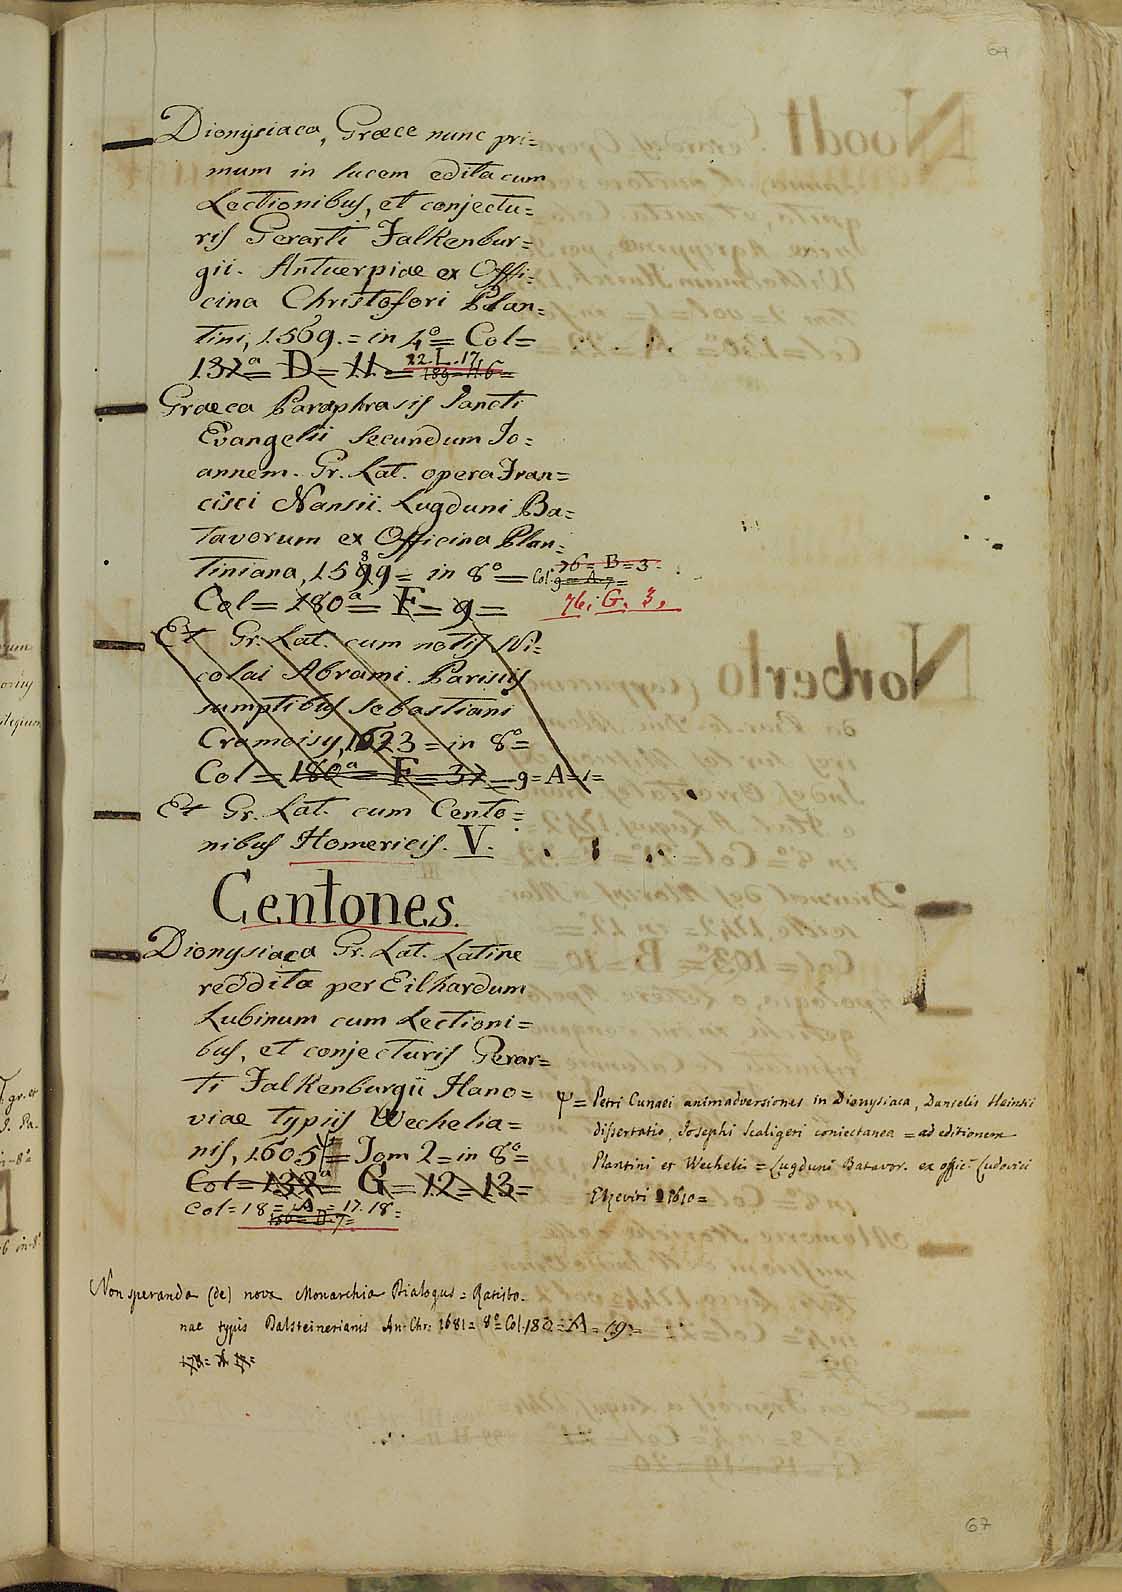 64
Dionysiaca, Græce nunc pri=
mum in lucem edita cum
Lectionibus, et conjectu=
ris Gerarti Falkenbur=
gii. Antuerpiæ ex Offi=
cina Christofori Plan=
tini, 1569. = in 4º = Col=
132ª = D = 11. = 22. L. 17.
189 = H. 6 =
Græca Paraphrasis Sancti
Evangelii secundum Jo=
annem. Gr. Lat. opera Fran=
cisci Nansii. Lugduni Ba=
tavorum ex Officina Plan=
tiniana, 1599 = in 8º = Col. 9 = A. 7 =
76 = B = 3.
Col = 180ª = F = 9 =
76. G. 3.
Et Gr. Lat. cum notis Ni=
colai Abrami. Parisiis
sumptibus Sebastiani
Cramoisy, 1623 = in 8º =
Col = 180ª = F = 37 = 9 = A = 1 =
Et Gr. Lat. cum Cento=
nibus Homericis. V.
Centones.
Dionysiaca Gr. Lat. Latine
reddita per Eilhardum
Lubinum cum Lectioni=
bus, et conjecturis Gerar=
ti Falkenburgii Hano=
viæ typis Wechelia=
nis, 1605 Ψ = Tom 2 = in 8º =
Col = 132ª = G = 12 = 13 =
Col = 18 = A = 17. 18 =
Ψ = Petri Cunaei animadversiones in Dionysiaca, Danielis Heinsii
dissertatio, Josephi Scaligeri coniectanea = ad editionem
Plantini et Wechelis = Lugduni Batavor. ex offic. Ludovici
Elzeviri 1610 =
Non speranda (de) nova Monarchia Dialogus = Ratisbo.
nae typis Dalsteinerianis An. Chr. 1681 = 8º Col. 180 = A = 19 =
67